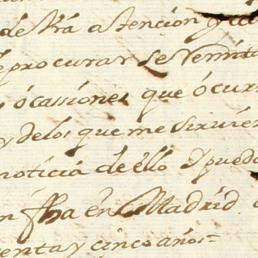 de Rã atencion y
procurar se Remita
ócassiones que ócur
y delos que me siruier
noticia de éllo Ypueda
fha én Madrid
enta y cinco años=